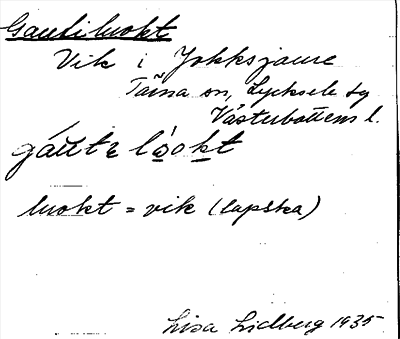 Gautiluokt
Vik i Jokksjaure
Tärna sn, Lycksele sg
Västerbottens l.
gáu̯tᴇ lòokt
luokt = vik (lapska)
Lisa Lidberg 1935